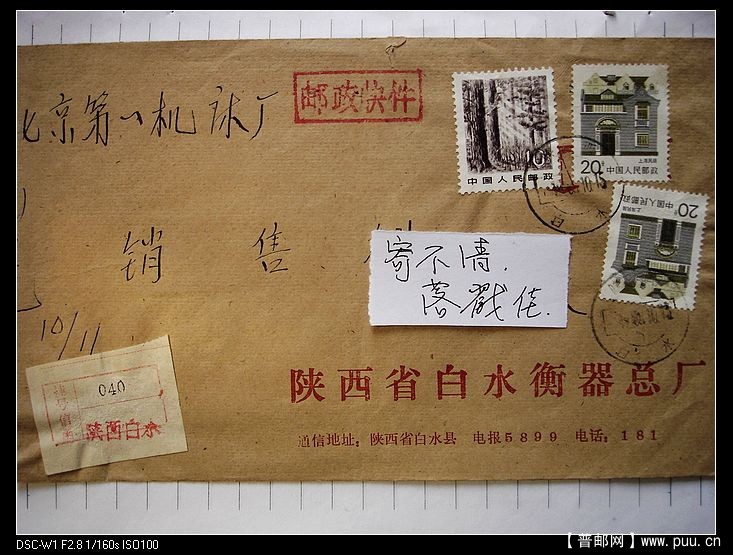 邮政快件
北京第一机床厂
10
中国人民邮政
20分
上海民居
中国人民邮政
20分
上海民居
中国人民邮政
销售
寄不清.
落戳佳.
10/11
040
陕西白水
陕西省白水衡器总厂
通信地址：陕西省白水县 电报5899 电话：181
DSC-W1 F2.8 1/160s ISO100
【普邮网】www.puu.cn